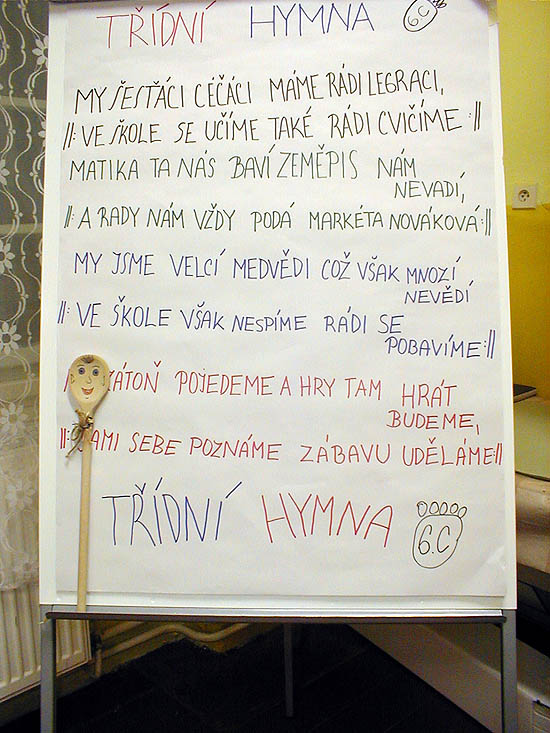 TŘÍDNÍ HYMNA 6C
MY ŠESŤÁCI CÉČÁCI MÁME RÁDI LEGRACI,
||: VE ŠKOLE SE UČÍME TAKÉ RÁDI CVIČÍME :||
MATIKA TA NÁS BAVÍ ZEMĚPIS NÁM
NEVADÍ,
||: A RADY NÁM VŽDY PODÁ MARKÉTA NOVÁKOVÁ :||
MY JSME VELCÍ MEDVĚDI COŽ VŠAK MNOZÍ
NEVĚDÍ
||: VE ŠKOLE VŠAK NESPÍME RÁDI SE
POBAVÍME :||
POJEDEME A HRY TAM HRÁT
BUDEME,
||: SAMI SEBE POZNÁME ZÁBAVU UDĚLÁME :||
TŘÍDNÍ HYMNA 6.C